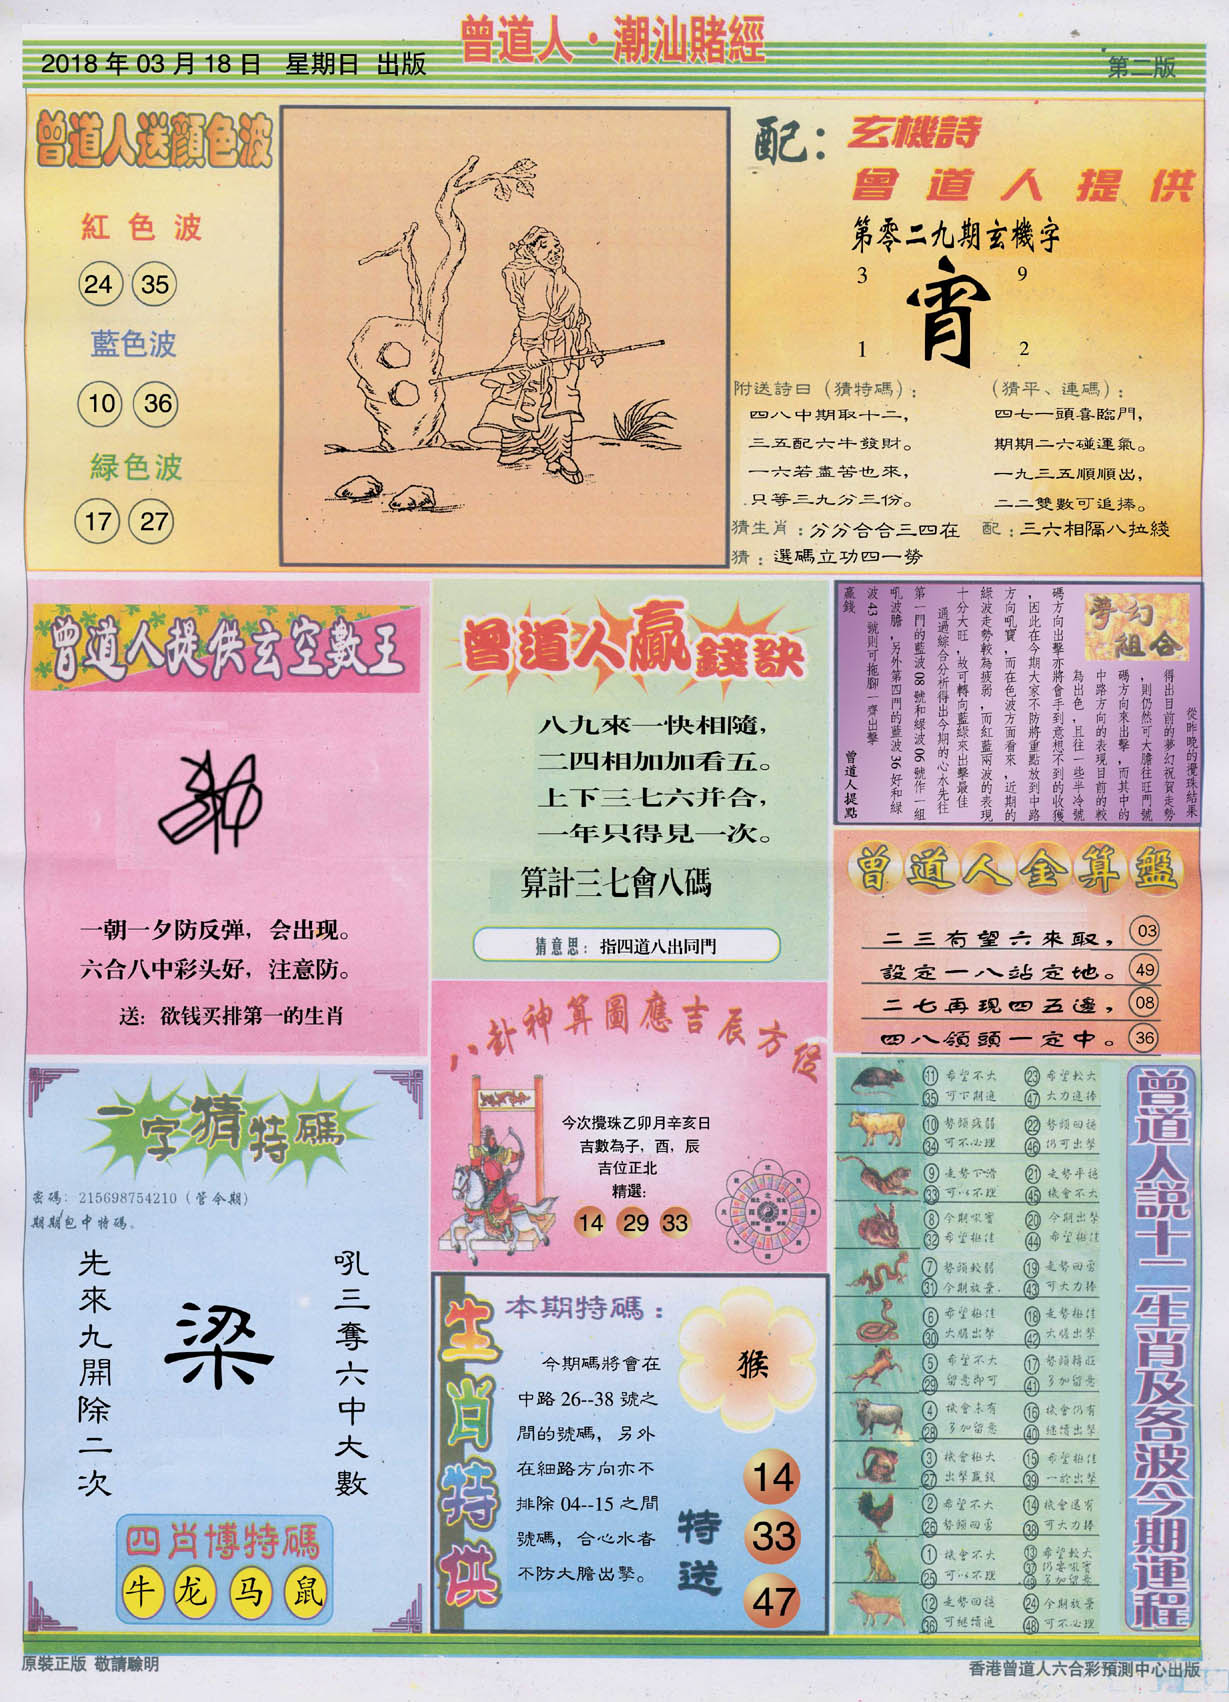 曾道人·潮汕賭經
2018 年 03 月 18 日 星期日 出版
第二版
曾道人送顏色波
紅色波
24 35
藍色波
10 36
緑色波
17 27
配：玄機詩
曾道人提供
第零二九期玄機字
3 9
宵
1 2
附送詩曰（猜特碼）：
四八中期取十二，
三五配六牛發財。
一六若盡苦也來，
只等三九分三份。
（猜平、連碼）：
四七一頭喜臨門，
期期二六碰運氣。
一九三五順順出，
二二雙數可追捧。
猜生肖：分分合合三四在
配：三六相隔八拉綫
猜：選碼立功四一勞
曾道人提供玄空數王
一朝一夕防反弹，会出现。
六合八中彩头好，注意防。
送：欲钱买排第一的生肖
曾道人贏錢訣
八九來一快相隨，
二四相加加看五。
上下三七六并合，
一年只得見一次。
算計三七會八碼
猜意思：指四道八出同門
夢幻組合
從昨晚的攪珠結果
得出目前的夢幻祝賀走勢
，則仍然可大膽往旺門號
碼方向來出擊，而其中的
中路方向的表現目前的較
為出色，且往一些半冷號
碼方向出擊亦將會手到意想不到的收獲
，因此在今期大家不防將重點放到中路
方向吼寶，而在色波方面看來，近期的
綠波走勢較為疲弱，而紅藍兩波的表現
十分大旺，故可轉向藍綠來出擊最佳
通過綜合分析得出今期的心水先往
第一門的藍波 08 號和綠波 06 號作一組
吼波膽，另外第四門的藍波 36 好和綠
波 43 號則可拖腳一齊出擊
贏錢
曾道人提點
曾道人金算盤
二三有望六來取， 03
設定一八站定地。 49
二七再現四五邊， 08
四八領頭一定中。 36
八卦神算圖應吉辰方位
今次攪珠乙卯月辛亥日
吉數為子，酉，辰
吉位正北
精選：
14 29 33
一字猜特碼
密碼：215698754210（管今期）
期期包中特碼。
先來九開除二次
梁
吼三奪六中大數
四肖博特碼
牛 龙 马 鼠
生肖特供
本期特碼：
猴
今期碼將會在
中路 26--38 號之
間的號碼，另外
在細路方向亦不
排除 04--15 之間
號碼，合心水者
不防大膽出擊。
特送
14
33
47
曾道人說十二生肖及各波今期運程
11 希望不大 23 希望較大
35 可下期追 47 大力追捧
10 勢頭殘弱 22 勢頭回穩
34 可不必理 46 仍可出擊
9 走勢下滑 21 走勢平穩
33 可以不理 45 機會不大
8 今期吼寶 20 今期出擊
32 希望極佳 44 希望極佳
7 勢頭較弱 19 走勢回勇
31 今期放棄. 43 可大力捧
6 希望極佳 18 走勢極佳
30 大膽出擊 42 大膽出擊
5 希望不大 17 勢頭轉旺
29 留意即可 41 多加留意
4 機會未有 16 機會仍有
28 多加留意 40 繼續出擊
3 機會極大 15 希望極佳
27 出擊贏錢 39 一於出擊
2 希望不大 14 機會還有
26 勢頭回勇 38 可大力捧
1 機會不大 13 希望較大
25 可以不理 37 仍要吼寶
49 多加留意
12 走勢回穩 24 今期放棄
36 可繼續追 48 可不必理
原裝正版 敬請驗明
香港曾道人六合彩預測中心出版